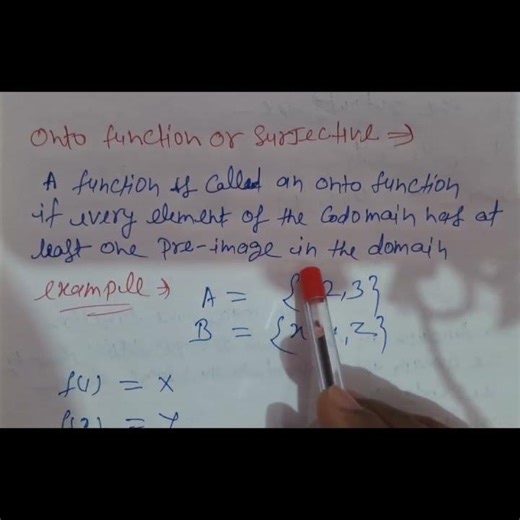 Onto function or Surjective ⇒
A function is called an onto function
if every element of the Codomain has at
least one Pre-image in the domain
example → A = { 2,3}
B = {x ,z}
f(1) = x
f(2) = y